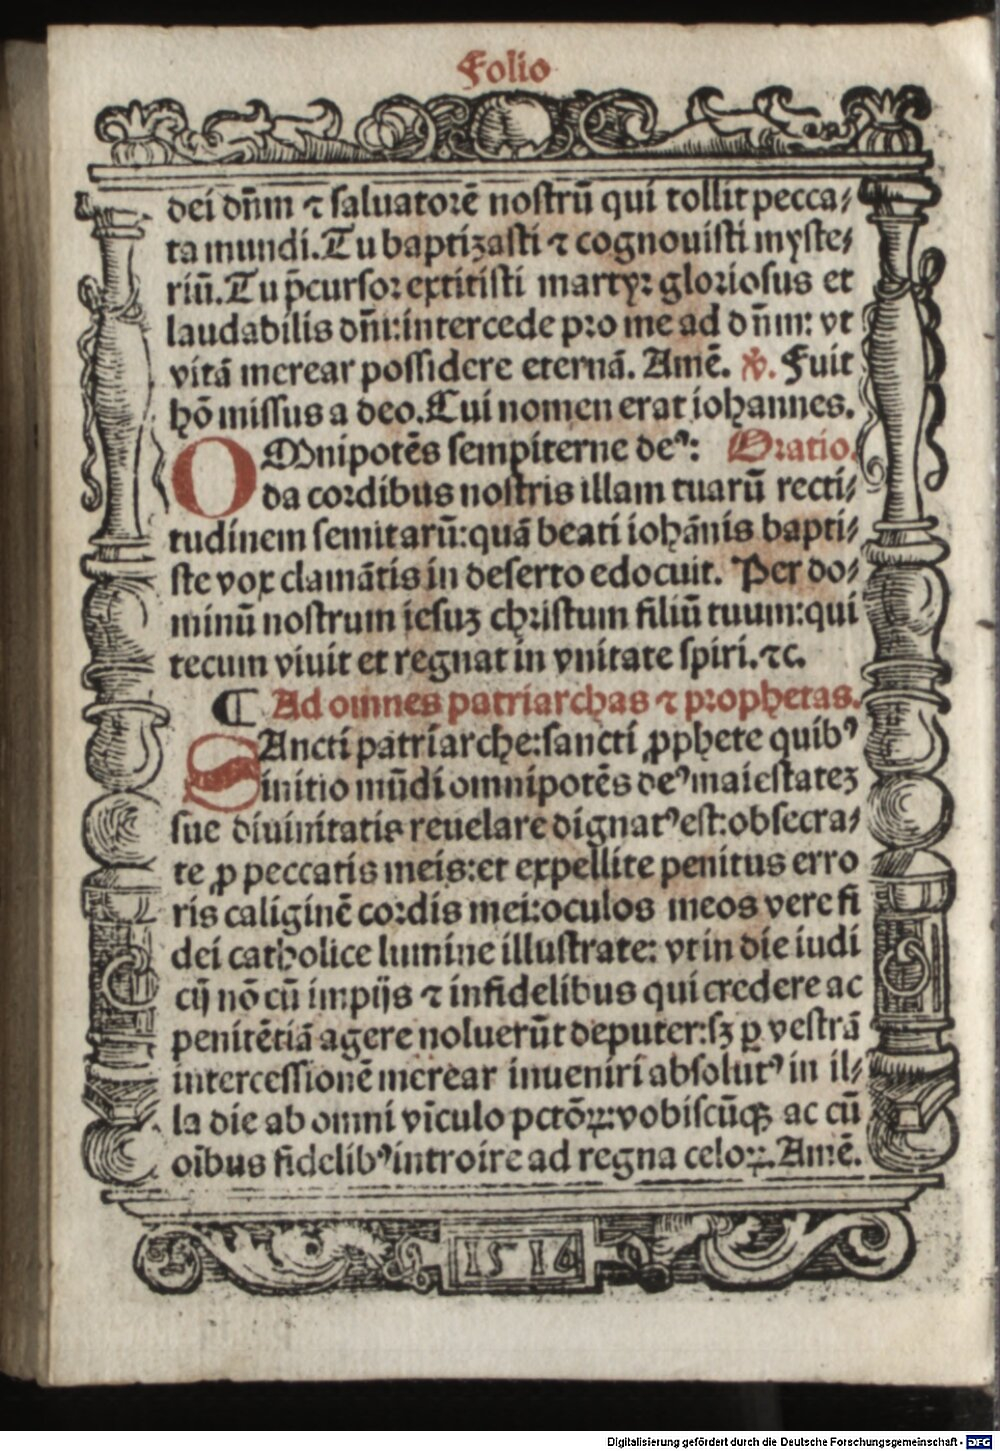 Folio
dei dn̄m ⁊ saluatorē nostrū qui tollit pecca⸗
ta mundi. Tu baptizasti ⁊ cognouisti myste⸗
riū. Tu p̄cursor extitisti martyr gloriosus et
laudabilis dn̄i: intercede pro me ad dn̄m: vt
vitā merear possidere eternā. Amē. ℣. Fuit
hō missus a deo. Cui nomen erat iohannes.
OMnipotēs sempiterne deꝰ: Oratio.
da cordibus nostris illam tuarū recti⸗
tudinem semitarū: quā beati iohānis bapti⸗
ste vox clamātis in deserto edocuit. Per do⸗
minū nostrum iesuꝫ christum filiū tuum: qui
tecum viuit et regnat in vnitate spiri. ⁊c.
¶ Ad omnes patriarchas ⁊ prophetas.
SAncti patriarche: sancti ꝓphete quibꝰ
initio mūdi omnipotēs deꝰ maiestateꝫ
sue diuinitatis reuelare dignatꝰ est: obsecra⸗
te ꝓ peccatis meis: et expellite penitus erro
ris caliginē cordis mei: oculos meos vere fi
dei catholice lumine illustrate: vt in die iudi
cij nō cū impijs ⁊ infidelibus qui credere ac
penitētiā agere noluerūt deputer: sꝫ ꝑ vestrā
intercessionē merear inueniri absolutꝰ in il⸗
la die ab omni vīculo pctōꝝ: vobiscūqꝫ ac cū
oībus fidelibꝰ introire ad regna celoꝝ. Amē.
1516
Digitalisierung gefördert durch die Deutsche Forschungsgemeinschaft - DFG